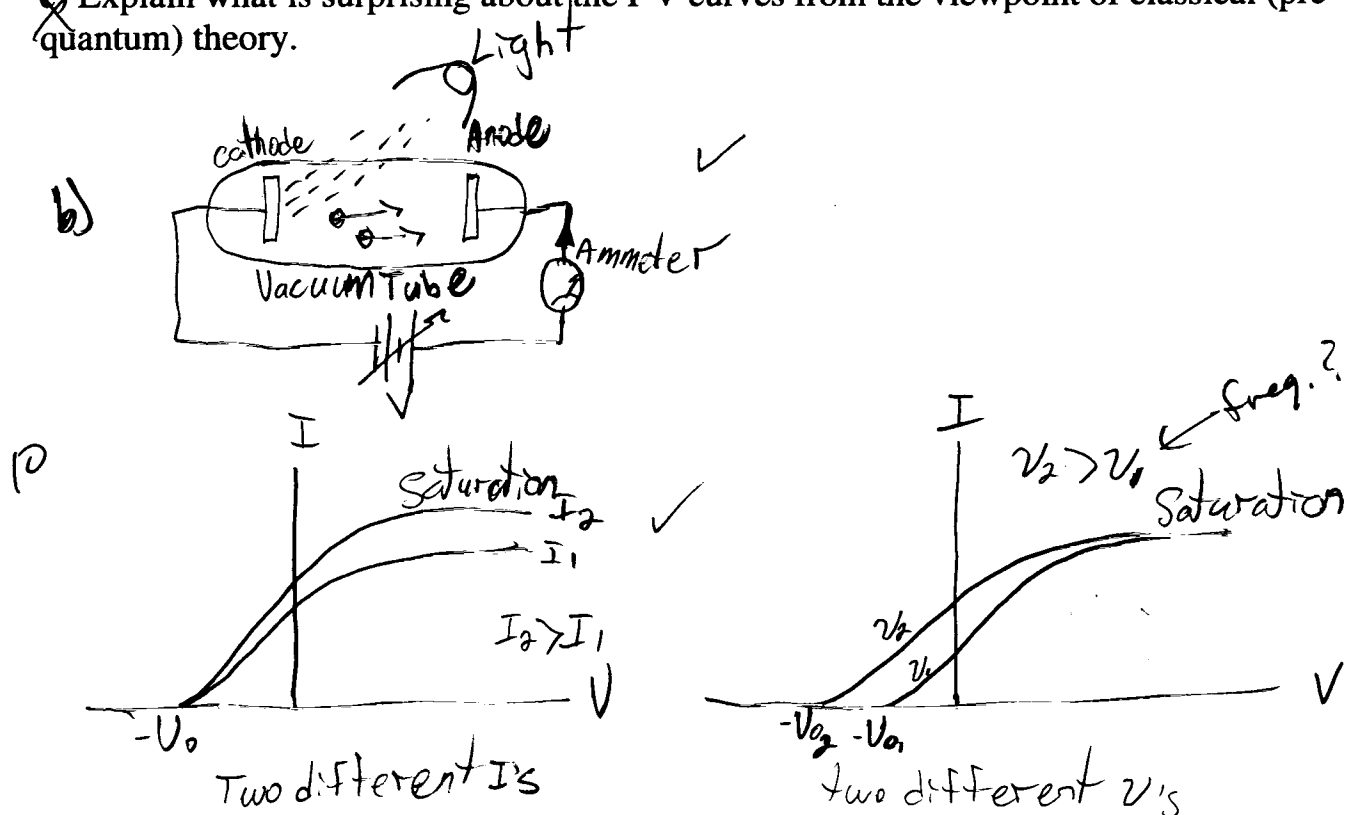 Explain what is surprising about the I-V curves from the viewpoint of classical (pre-
quantum) theory.
Light
cathode
Anode
b)
Ammeter
Vacuum Tube
V
I
Saturation
I₂
I₁
I₂>I₁
V
-V₀
Two different I's
I
freq.?
ν₂>ν₁
Saturation
ν₂
ν₁
V
-V₀₂ -V₀₁
two different ν's